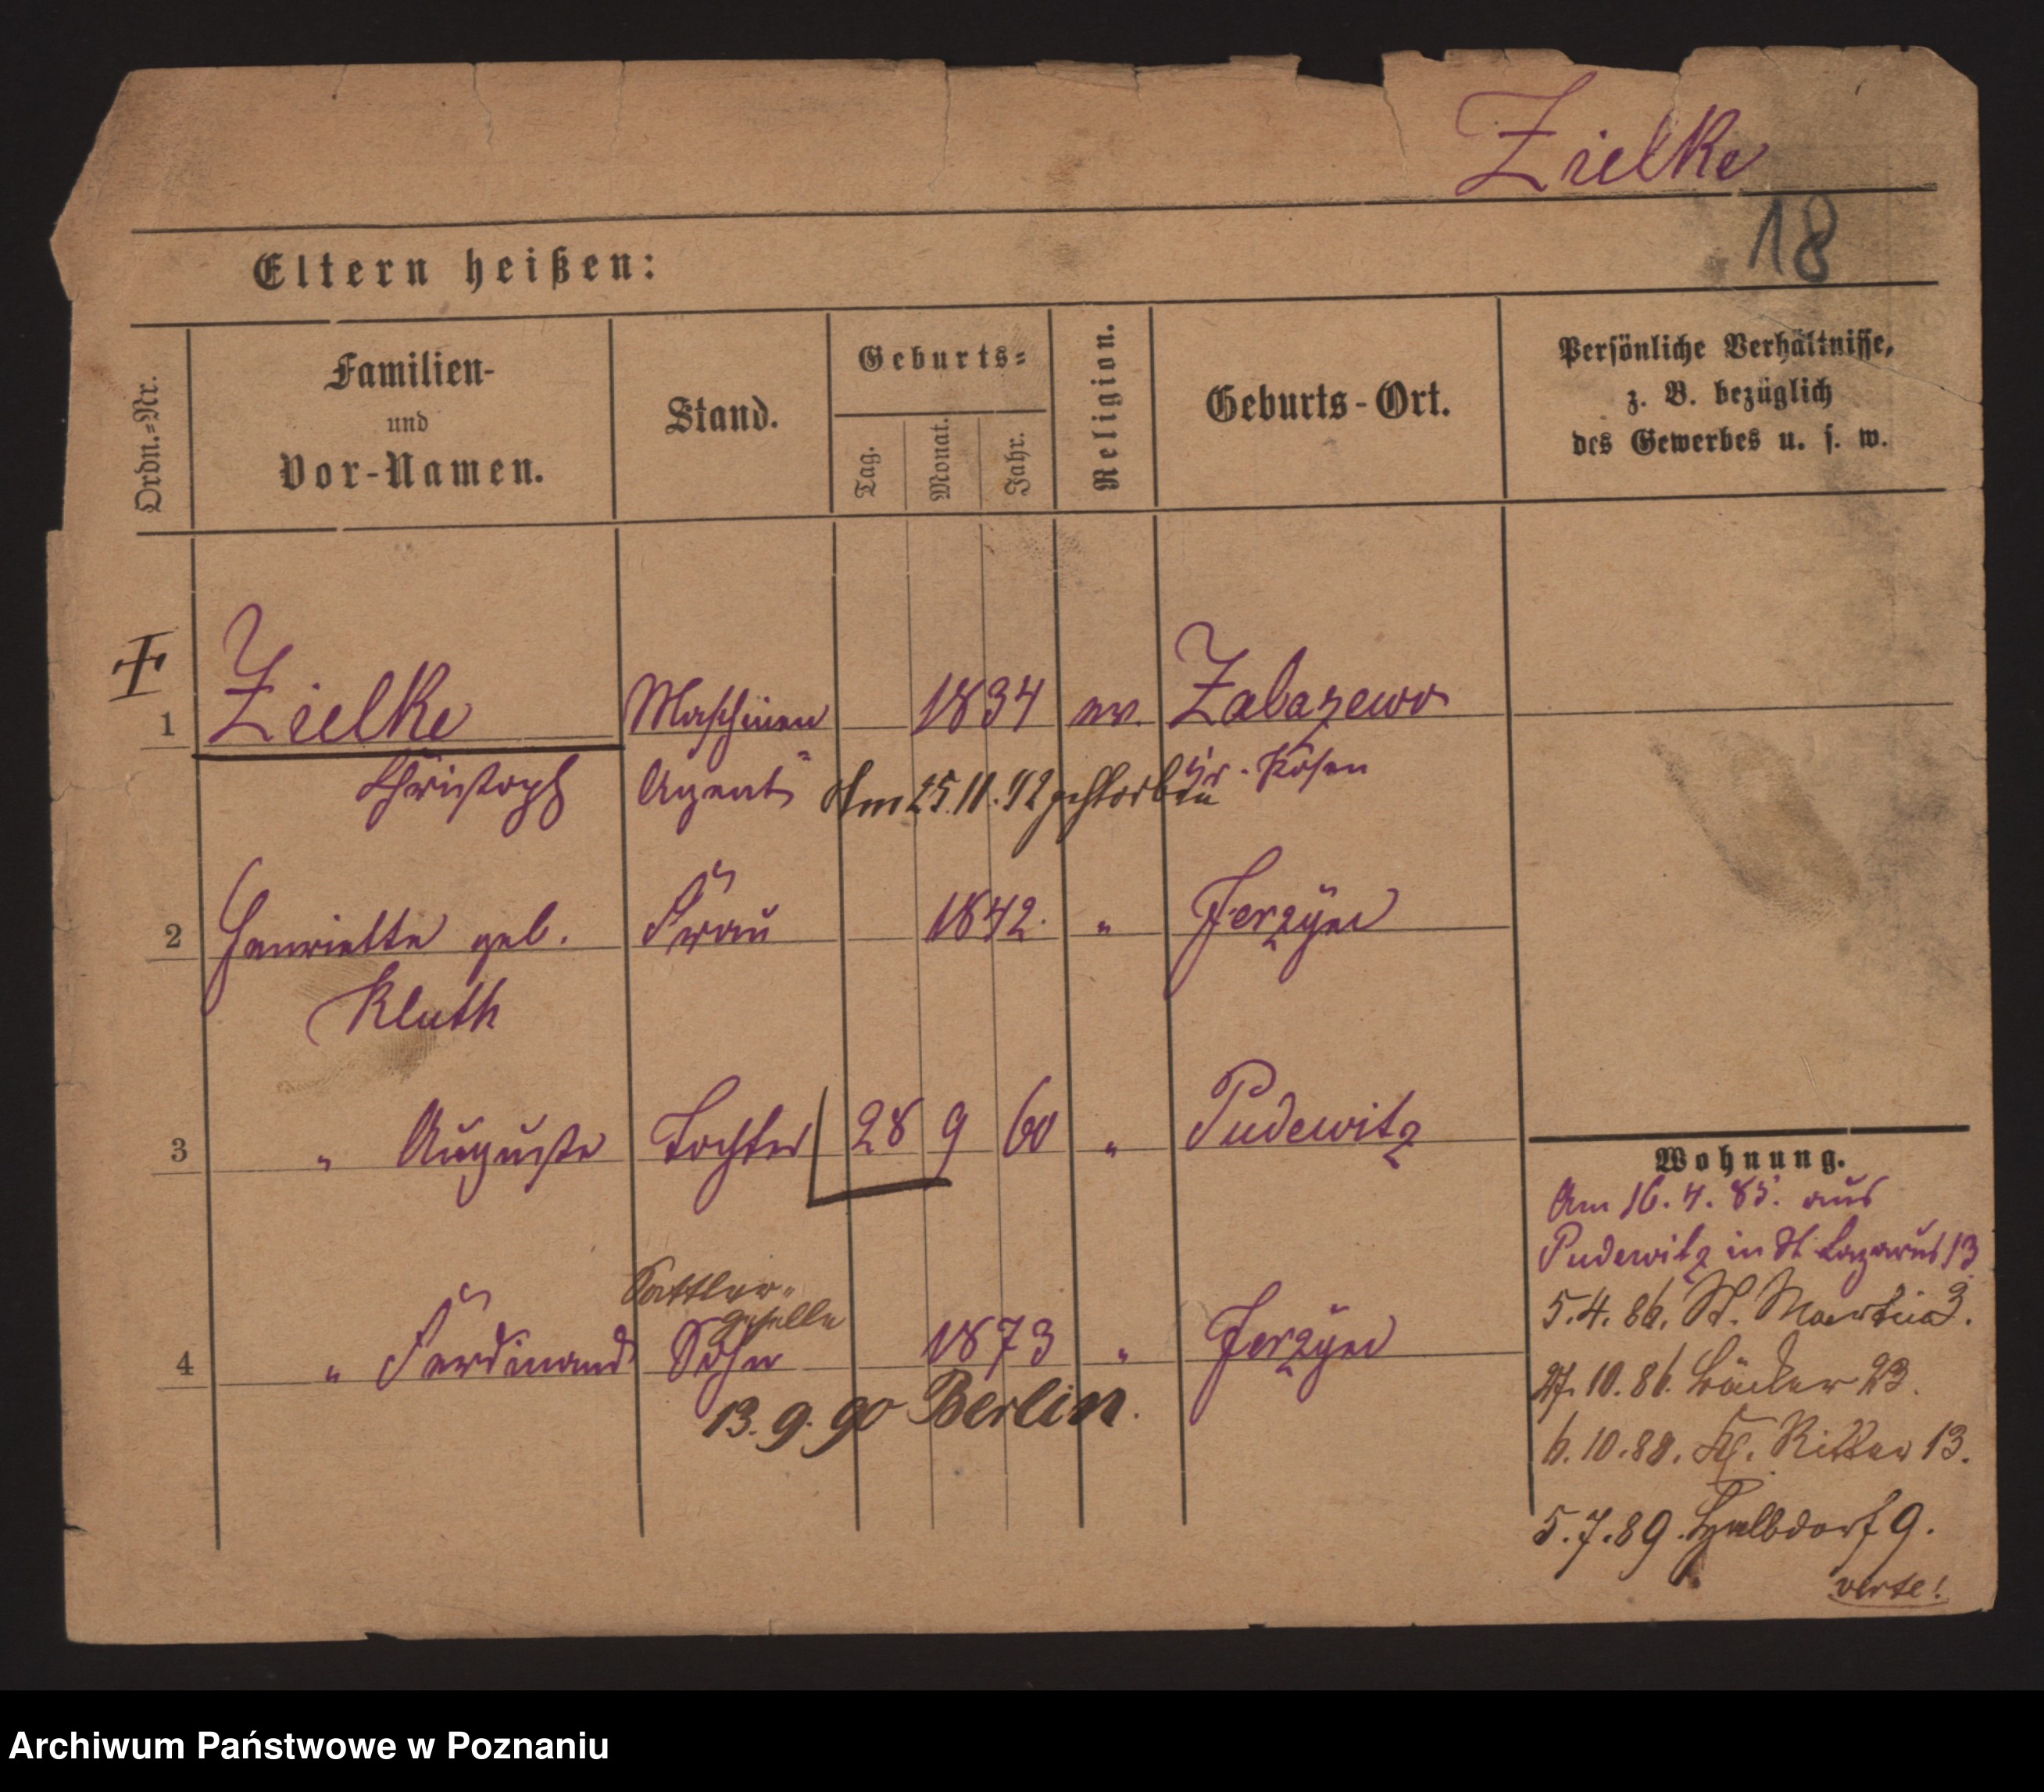 Zielke
18
Eltern heißen:
Ordn.=Nr.
Familien-
und
Vor-Namen.
Stand.
Geburts=
Tag.
Monat.
Jahr.
Religion.
Geburts-Ort.
Persönliche Verhältnisse,
z. B. bezüglich
des Gewerbes u. s. w.
1 Zielke Maschinen 1834 ev.
Christoph Agent Am 25.11.92 gestorben Kr.
2 Henriette geb. Frau 1842. "
Kluth
3 " Auguste Tochter 28 9 60 " Pudewitz
Sattler-
geselle
4 " Ferdinand Sohn 1873 "
13.9.90 Berlin.
Wohnung.
Am 16.4.85. aus
Pudewitz in St Lazarus 13
5.4.86. St. Martin 3.
27.10.86. Bäcker 23.
6.10.88. Kl. Ritter 13.
5.7.89. Halbdorf 9.
verte!
Archiwum Państwowe w Poznaniu